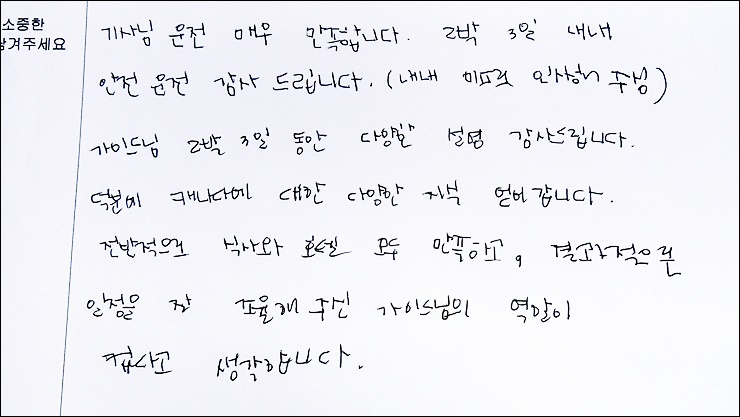 소중한
남겨주세요
기사님 운전 매우 만족합니다. 2박 3일 내내
안전 운전 감사 드립니다. (내내 미프로 인사해 주심)
가이드님 2박 3일 동안 다양한 설명 감사드립니다.
덕분에 캐나다에 대한 다양한 지식 얻어 갑니다.
전반적으로 식사와 호텔 모두 만족하고, 결과적으론
일정을 잘 조율해 주신 가이드님의 역할이
컸다고 생각합니다.